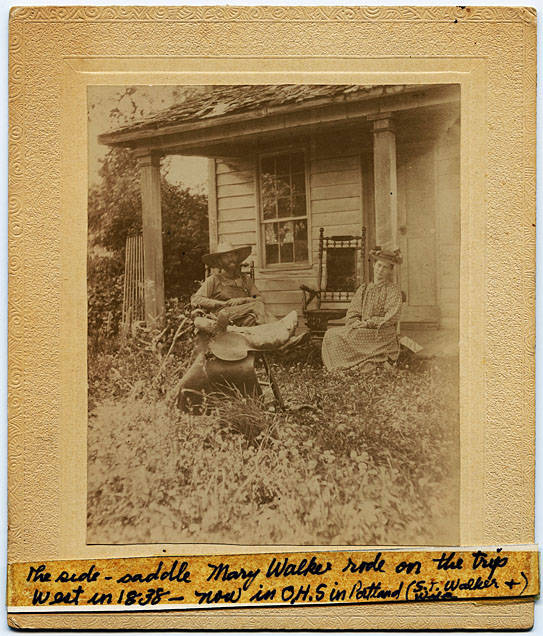 The side-saddle Mary Walker rode on the trip
West in 1838 - now in O.H.S in Portland (S.T. Walker +
Wife)